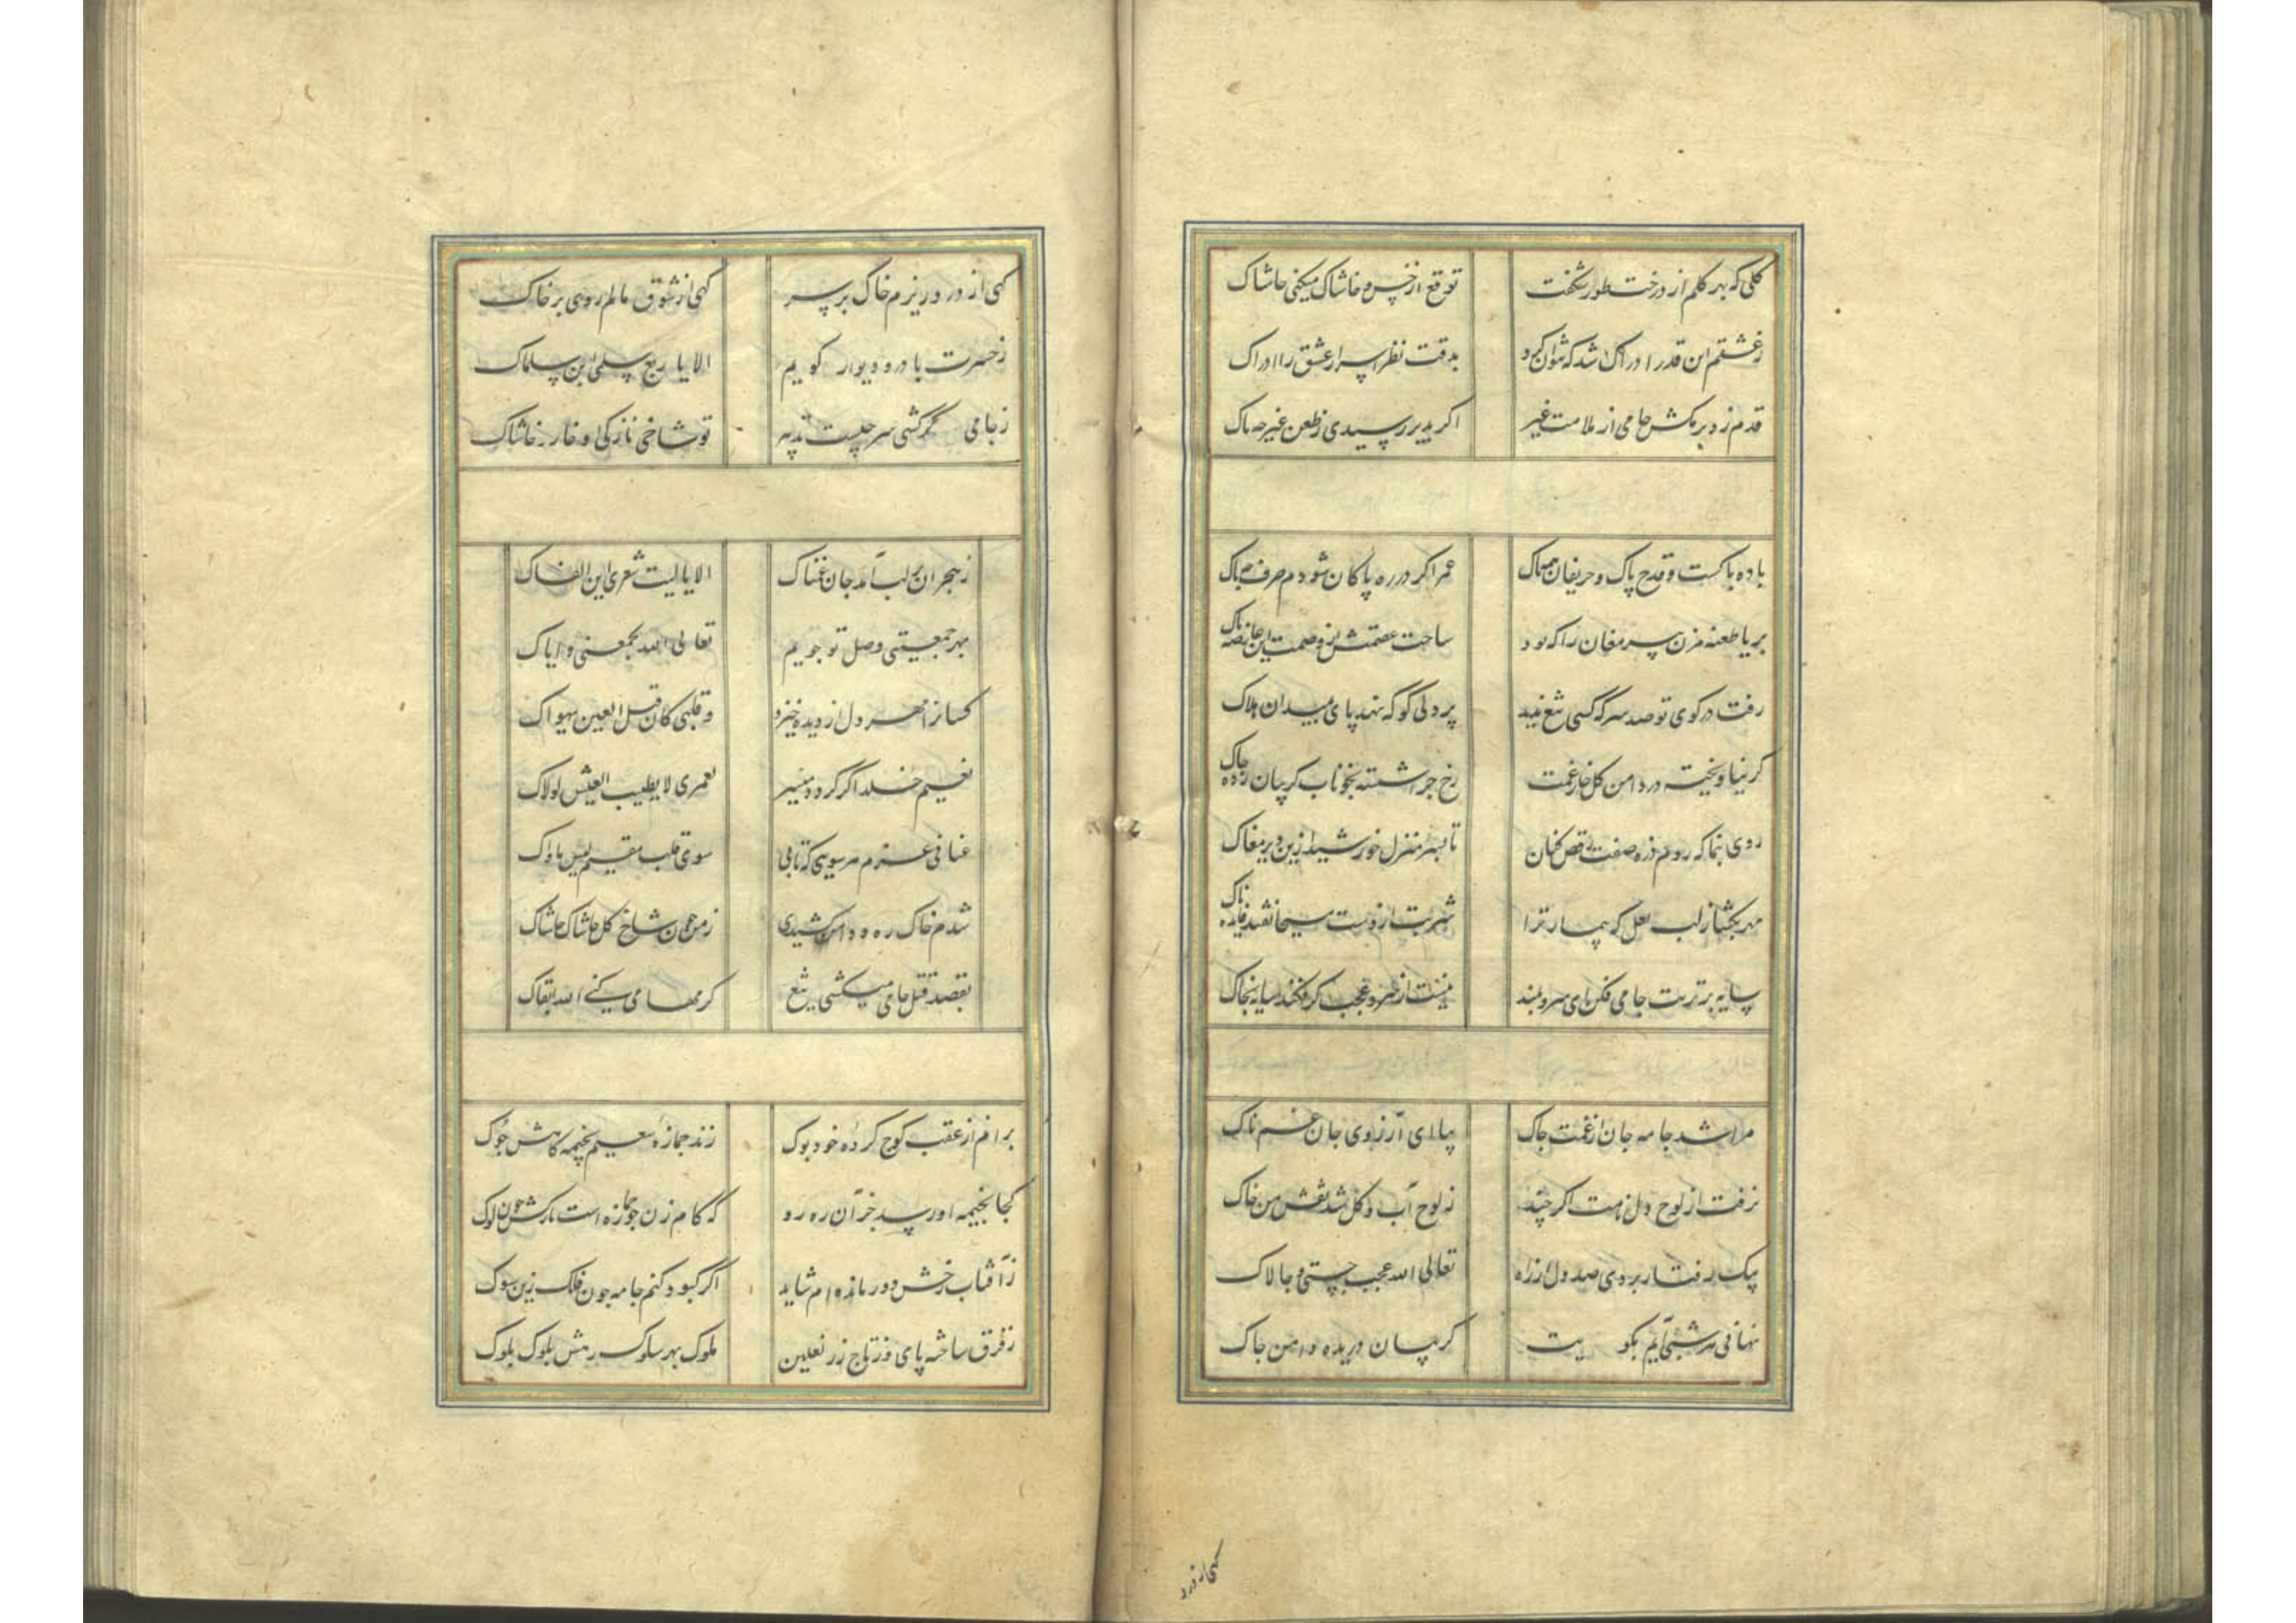 گلی که بهر کلیم از درخت طور شکفت توقع از خس و خاشاک میکنی حاشاک
ز عشقم این قدر ادراک شد که نتوان کرد بدقت نظر اسرار عشق را ادراک
قدم ز دیر مکش جامی از ملامت غیر اگر بدیر رسیدی ز طعن غیر چه باک
باده پاکست و قدح پاک و حریفان همه پاک عمر اگر در ره پاکان شودم صرف چه باک
بریا طعنه مزن پیر مغان را که بود ساحت عصمتش از وصمت این خاصه پاک
رفت در کوی تو صد سر که کسی تیغ ندید پردلی گو که نهد پای بمیدان هلاک
گر نیاویخته در دامن گل خار غمت رخ چرا شسته بخوناب گریبان زده چاک
روی بنما که روم ذره صفت رقص کنان تا بسر منزل خورشید ازین دیر مغاک
مهر بگشا ز لب لعل که بیمار ترا شربت از دست مسیحا نفتد فایده ناک
سایه بر تربت جامی فکن ای سرو بلند نیست از سرو عجب گر فکند سایه بخاک
مرا شد جامه جان از غمت چاک بیا ای آرزوی جان غمناک
نرفت از لوح دل نامت اگر چند ز لوح آب و گل شد نقش من خاک
بیک رفتار بردی صد دل از راه تعالی الله عجب چستی و چالاک
نهانی هر شبی آیم بکویت گریبان دریده دامن چاک
گهی از درد
گهی از درد ریزم خاک بر سر گهی از شوق مالم روی بر خاک
ز حسرت با در و دیوار گویم الا یا ربع سلمی این سلماک
ز جامی گر کشی سر چیست تدبیر تو شاخی نازکی او خار و خاشاک
ز هجران بر لب آمد جان غمناک الا یا لیت شعری این القاک
بهر جمعیتی وصل تو جویم تعالی الله یجمعنی و ایاک
کسانرا مهر دل از دیده خیزد و قلبی کان قبل العین یهواک
نعیم خلد اگر گردد میسر لعمری لا یطیب العیش لولاک
عنانی عزم هر سویی که تابی سوی قلب مقیم لیس ماواک
شدم خاک ره و دامن کشیدی ز من چون شاخ گل حاشاک حاشاک
بقصد قتل جامی میکشی تیغ کرمها می کنی الله ابقاک
برانم از عقب کوچ کرده خود بوک زند جمازه سعیم بخیمه گاهش چوک
کجا بخیمه او رسد جز آن ره رو که گام زن چو جمازه است بارکش چون لوک
ز آفتاب رخش دور مانده ام شاید اگر کبود کنم جامه چون فلک زین سوک
ز فرق ساخته پای و ز تاج زر نعلین ملوک بهر سلوک رهش بلوک بلوک